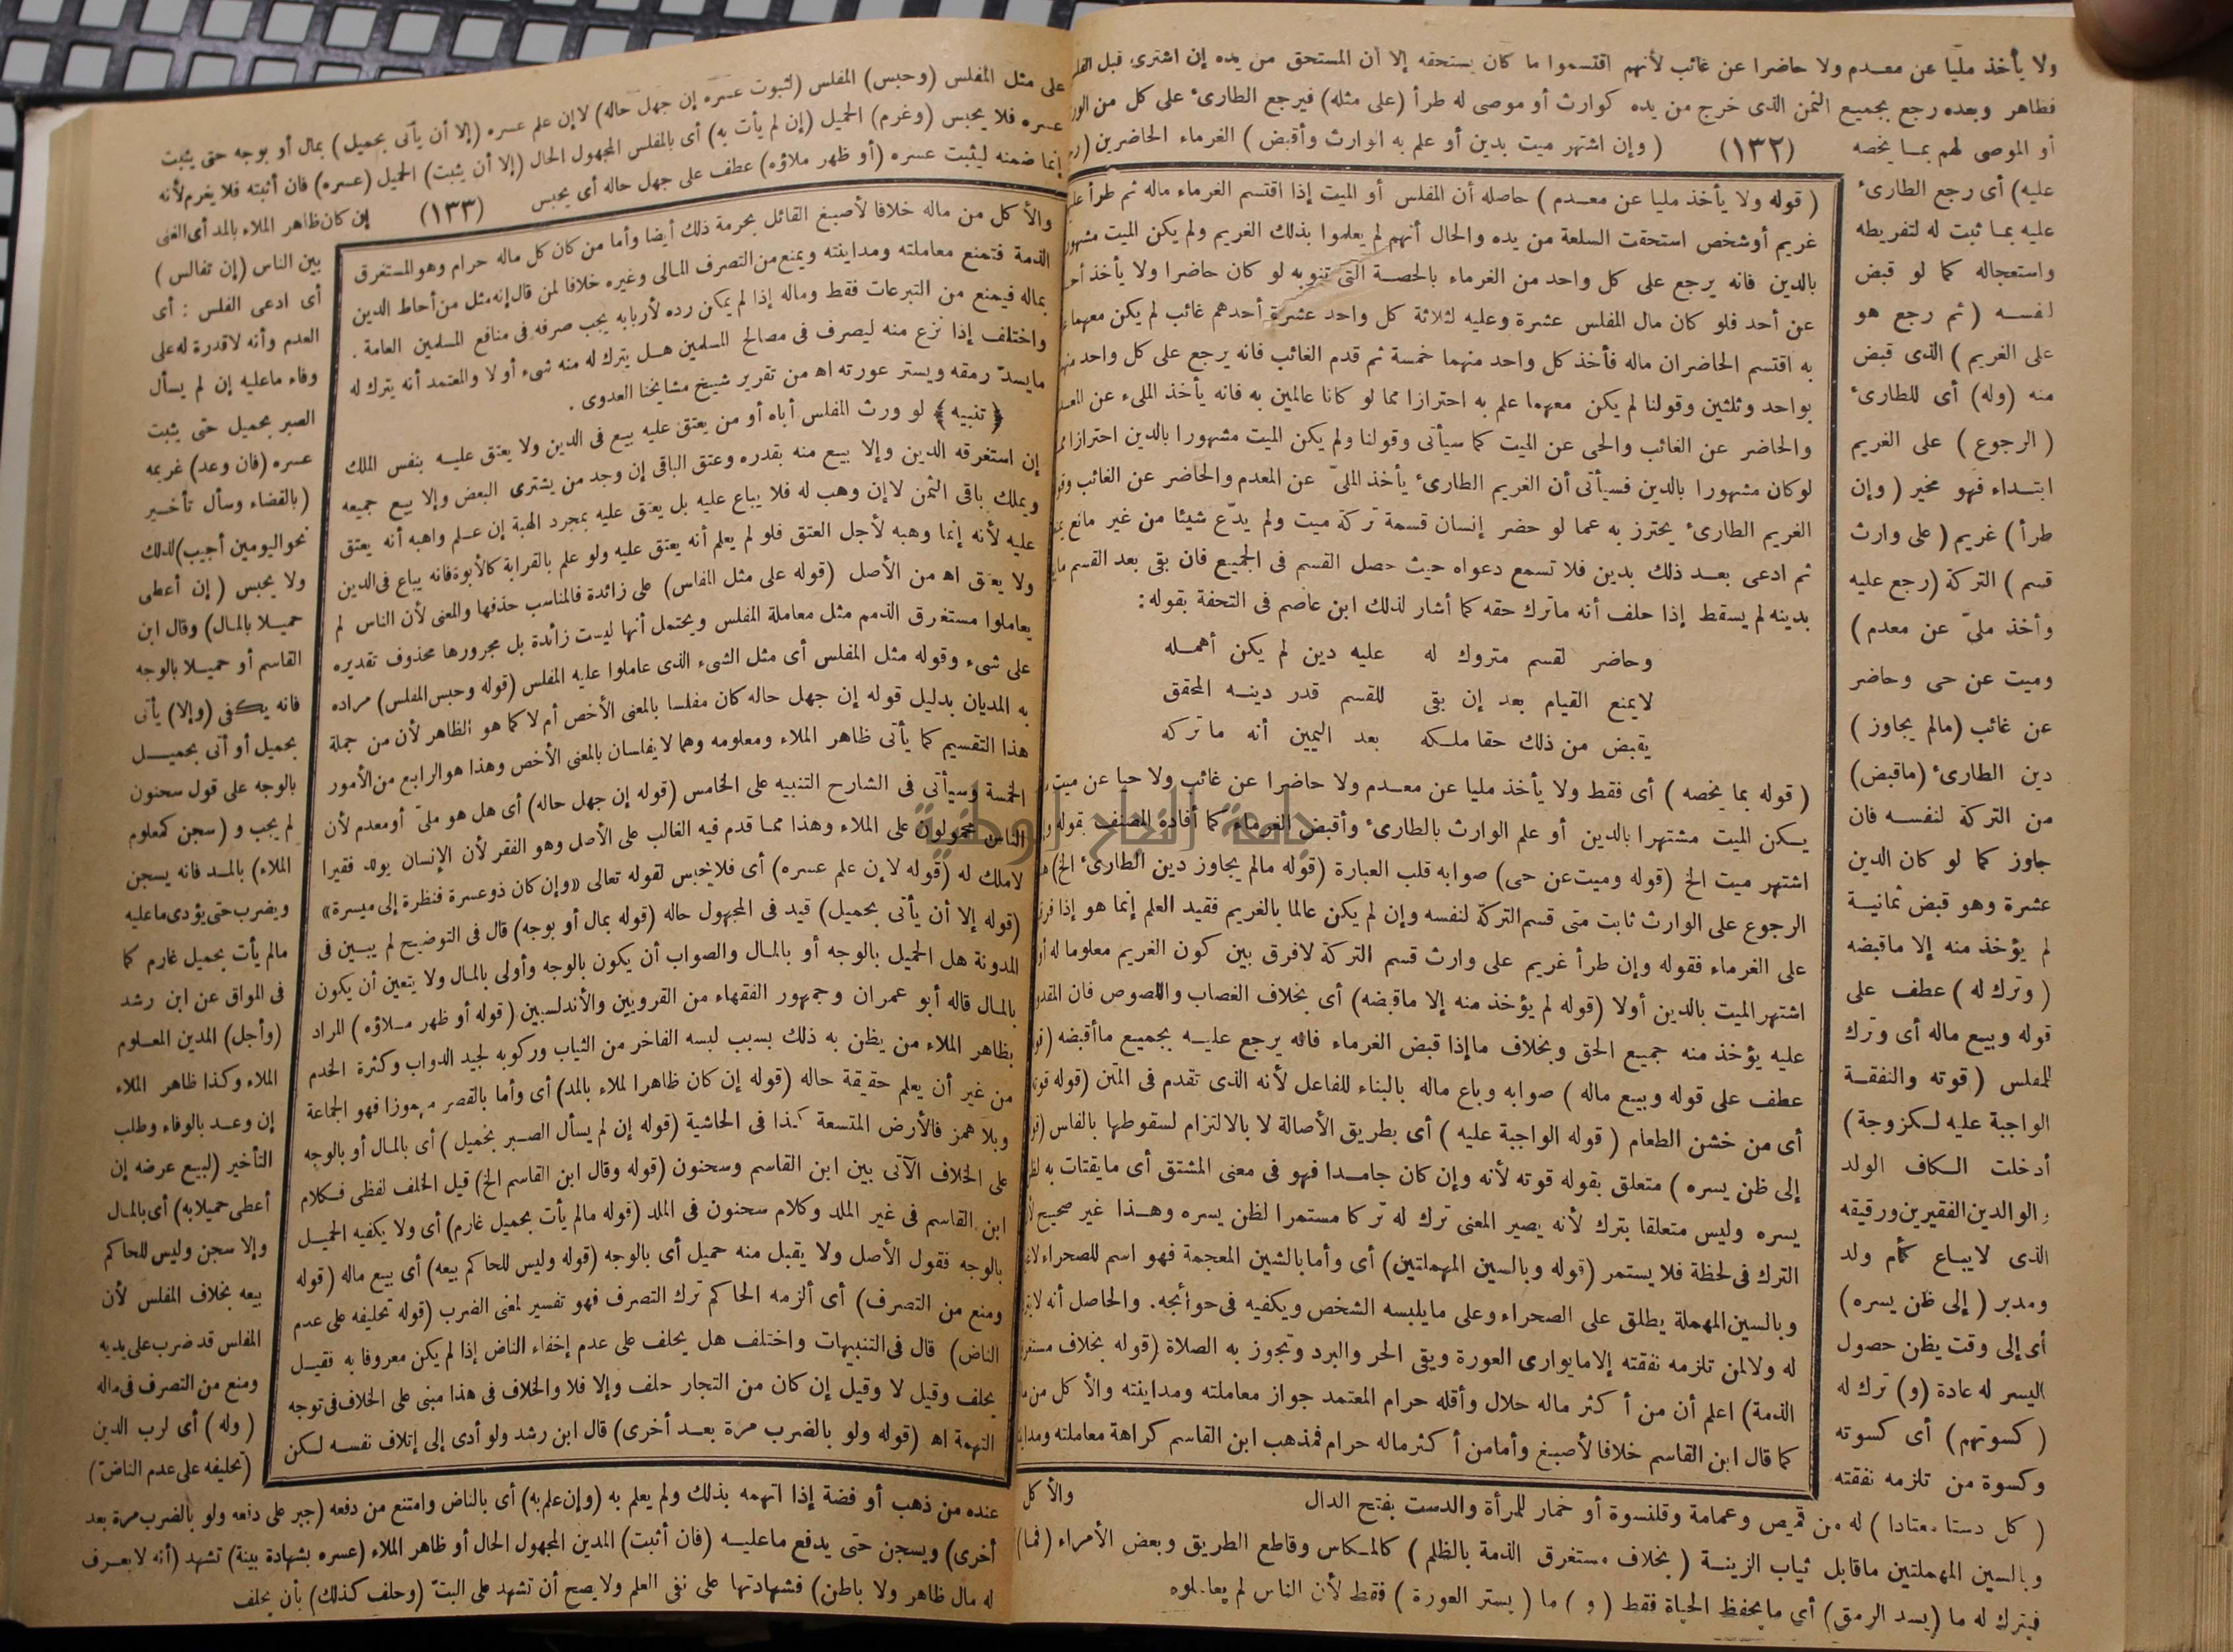 ولا يأخذ مليا عن معدم ولا حاضرا عن غائب لأنهم اقتسموا ما كان يستحقه إلا أن المستحق من يده إن اشترى قبل الفلس
فظاهر وبعده رجع بجميع الثمن الذى خرج من يده كوارث أو موصى له طرأ (على مثله) فيرجع الطارئ على كل من
أو الموصى لهم بما يخصه (١٣٢) (وإن اشتهر ميت بدين أو علم به الوارث وأقبض) الغرماء الحاضرين
عليه) أى رجع الطارئ
عليه بما ثبت له لتفريطه
واستعجاله كما لو قبض
لنفسه (ثم رجع هو
على الغريم) الذى قبض
منه (وله) أى للطارئ
(الرجوع) على الغريم
ابتداء فهو مخير (وإن
طرأ) غريم (على وارث
قسم) التركة (رجع عليه
وأخذ ملىّ عن معدم)
وميت عن حى وحاضر
عن غائب (مالم يجاوز)
دين الطارئ (ماقبض)
من التركة لنفسه فان
جاوز كما لو كان الدين
عشرة وهو قبض ثمانية
لم يؤخذ منه إلا ماقبضه
(وترك له) عطف على
قوله وبيع ماله أى وترك
للمفلس (قوته والنفقة
الواجبة عليه لكزوجة)
أدخلت الكاف الولد
والوالدين الفقيرين ورقيقه
الذى لايباع كأم ولد
ومدبر (إلى ظن يسره)
أى إلى وقت يظن حصول
اليسر له عادة (و) ترك له
(كسوتهم) أى كسوته
وكسوة من تلزمه نفقته
(قوله ولا يأخذ مليا عن معدم) حاصله أن المفلس أو الميت إذا اقتسم الغرماء ماله ثم طرأ
غريم أوشخص استحقت السلعة من يده والحال أنهم لم يعلموا بذلك الغريم ولم يكن الميت مشهورا
بالدين فانه يرجع على كل واحد من الغرماء بالحصة التى تنوبه لو كان حاضرا ولا يأخذ
عن أحد فلو كان مال المفلس عشرة وعليه لثلاثة كل واحد عشرة أحدهم غائب لم يكن معهما
به اقتسم الحاضران ماله فأخذ كل واحد منهما خمسة ثم قدم الغائب فانه يرجع على كل واحد منهما
بواحد وثلثين وقولنا لم يكن معهما علم به احترازا مما لو كانا عالمين به فانه يأخذ الملىء عن
والحاضر عن الغائب والحى عن الميت كما سيأتى وقولنا ولم يكن الميت مشهورا بالدين احترازا
لوكان مشهورا بالدين فسيأتى أن الغريم الطارئ يأخذ الملىّ عن المعدم والحاضر عن الغائب
الغريم الطارئ يحترز به عما لو حضر إنسان قسمة تركة ميت ولم يدّع شيئا من غير مانع
ثم ادعى بعد ذلك بدين فلا تسمع دعواه حيث حصل القسم فى الجميع فان بقى بعد القسم
بدينه لم يسقط إذا حلف أنه ماترك حقه كما أشار لذلك ابن عاصم فى التحفة بقوله :
وحاضر لقسم متروك له عليه دين لم يكن أهمله
لايمنع القيام بعد إن بقى للقسم قدر دينه المحقق
يقبض من ذلك حقا ملكه بعد اليمين أنه ماتركه
(قوله بما يخصه) أى فقط ولا يأخذ مليا عن معدم ولا حاضرا عن غائب ولا حيا عن ميت
يكن الميت مشتهرا بالدين أو علم الوارث بالطارئ وأقبض الغرماء كما أفاده المصنف بقوله
اشتهر ميت الخ (قوله وميت عن حى) صوابه قلب العبارة (قوله مالم يجاوز دين الطارئ الخ)
الرجوع على الوارث ثابت متى قسم التركة لنفسه وإن لم يكن عالما بالغريم فقيد العلم إنما هو إذا
على الغرماء فقوله وإن طرأ غريم على وارث قسم التركة لافرق بين كون الغريم معلوما له
اشتهر الميت بالدين أولا (قوله لم يؤخذ منه إلا ماقبضه) أى بخلاف الغصاب واللصوص فان
عليه يؤخذ منه جميع الحق وبخلاف ماإذا قبض الغرماء فانه يرجع عليه بجميع ماأقبضه
عطف على قوله وبيع ماله) صوابه وباع ماله بالبناء للفاعل لأنه الذى تقدم فى المتن (قوله قوته
أى من خشن الطعام (قوله الواجبة عليه) أى بطريق الأصالة لا بالالتزام لسقوطها بالفلس
إلى ظن يسره) متعلق بقوله قوته لأنه وإن كان جامدا فهو فى معنى المشتق أى مايقتات به
يسره وليس متعلقا بترك لأنه يصير المعنى ترك له تركا مستمرا لظن يسره وهذا غير صحيح
الترك فى لحظة فلا يستمر (قوله وبالسين المهملتين) أى وأما بالشين المعجمة فهو اسم للصحراء
وبالسين المهملة يطلق على الصحراء وعلى مايلبسه الشخص ويكفيه فى حوائجه . والحاصل أنه
له ولالمن تلزمه نفقته إلا مايوارى العورة ويقى الحر والبرد وتجوز به الصلاة (قوله بخلاف
الذمة) اعلم أن من أكثر ماله حلال وأقله حرام المعتمد جواز معاملته ومداينته والأكل من
كما قال ابن القاسم خلافا لأصبغ وأمامن أكثرماله حرام فمذهب ابن القاسم كراهة معاملته
والأكل
(كل دستا معتادا) له من قميص وعمامة وقلنسوة أو خمار للمرأة والدست بفتح الدال
وبالسين المهملتين ماقابل ثياب الزينة (بخلاف مستغرق الذمة بالظلم) كالمكاس وقاطع الطريق وبعض الأمراء (فما)
فيترك له ما (يسد الرمق) أى مايحفظ الحياة فقط (و) ما (يستر العورة) فقط لأن الناس لم يعاملوه
على مثل المفلس (وحبس) المفلس (لثبوت عسره إن جهل حاله) لاإن علم عسره (إلا أن يأتى بحميل) بمال أو بوجه حتى يثبت
عسره فلا يحبس (وغرم) الحميل (إن لم يأت به) أى بالمفلس المجهول الحال (إلا أن يثبت) الحميل (عسره) فان أثبته فلا يغرم لأنه
إنما ضمنه ليثبت عسره (أو ظهر ملاؤه) عطف على جهل حاله أى يحبس (١٣٣) إن كان ظاهر الملاء بالمد أى الغنى
بين الناس (إن تفالس)
أى ادعى الفلس : أى
العدم وأنه لاقدرة له على
وفاء ماعليه إن لم يسأل
الصبر بحميل حتى يثبت
عسره (فان وعد) غريمه
(بالقضاء وسأل تأخير
نحو اليومين أجيب) لذلك
ولا يحبس (إن أعطى
حميلا بالمال) وقال ابن
القاسم أو حميلا بالوجه
فانه يكفى (وإلا) يأتى
بحميل أو أتى بحميل
بالوجه على قول سحنون
لم يجب و (سجن كمعلوم
الملاء) بالمد فانه يسجن
ويضرب حتى يؤدى ماعليه
مالم يأت بحميل غارم كما
فى المواق عن ابن رشد
(وأجل) المدين المعلوم
الملاء وكذا ظاهر الملاء
إن وعد بالوفاء وطلب
التأخير (لبيع عرضه إن
أعطى حميلا به) أى بالمال
وإلا سجن وليس للحاكم
بيعه بخلاف المفلس لأن
المفلس قد ضرب على يديه
ومنع من التصرف فى ماله
(وله) أى لرب الدين
(تحليفه على عدم الناض)
والأكل من ماله خلافا لأصبغ القائل بحرمة ذلك أيضا وأما من كان كل ماله حرام وهو المستغرق
الذمة فتمنع معاملته ومداينته ويمنع من التصرف المالى وغيره خلافا لمن قال إنه مثل من أحاط الدين
بماله فيمنع من التبرعات فقط وماله إذا لم يمكن رده لأربابه يجب صرفه فى منافع المسلمين العامة .
واختلف إذا نزع منه ليصرف فى مصالح المسلمين هل يترك له منه شىء أولا والمعتمد أنه يترك له
مايسدّ رمقه ويستر عورته اه من تقرير شيخ مشايخنا العدوى .
﴿تنبيه﴾ لو ورث المفلس أباه أو من يعتق عليه بيع فى الدين ولا يعتق عليه بنفس الملك
إن استغرقه الدين وإلا بيع منه بقدره وعتق الباقى إن وجد من يشترى البعض وإلا بيع جميعه
ويملك باقى الثمن لاإن وهب له فلا يباع عليه بل يعتق عليه بمجرد الهبة إن علم واهبه أنه يعتق
عليه لأنه إنما وهبه لأجل العتق فلو لم يعلم أنه يعتق عليه ولو علم بالقرابة كالأبوة فانه يباع فى الدين
ولا يعتق اه من الأصل (قوله على مثل المفلس) على زائدة فالمناسب حذفها والمعنى لأن الناس لم
يعاملوا مستغرق الذمم مثل معاملة المفلس ويحتمل أنها ليست زائدة بل مجرورها محذوف تقديره
على شىء وقوله مثل المفلس أى مثل الشىء الذى عاملوا عليه المفلس (قوله وحبس المفلس) مراده
به المديان بدليل قوله إن جهل حاله كان مفلسا بالمعنى الأخص أم لا كما هو الظاهر لأن من جملة
هذا التقسيم كما يأتى ظاهر الملاء ومعلومه وهما لايفلسان بالمعنى الأخص وهذا هو الرابع من الأمور
الخمسة وسيأتى فى الشارح التنبيه على الخامس (قوله إن جهل حاله) أى هل هو ملىّ أومعدم لأن
الناس محمولون على الملاء وهذا مما قدم فيه الغالب على الأصل وهو الفقر لأن الإنسان يولد فقيرا
لاملك له (قوله لاإن علم عسره) أى فلا يحبس لقوله تعالى «وإن كان ذو عسرة فنظرة إلى ميسرة»
(قوله إلا أن يأتى بحميل) قيد فى المجهول حاله (قوله بمال أو بوجه) قال فى التوضيح لم يبين فى
المدونة هل الحميل بالوجه أو بالمال والصواب أن يكون بالوجه وأولى بالمال ولا يتعين أن يكون
بالمال قاله أبو عمران وجمهور الفقهاء من القرويين والأندلسيين (قوله أو ظهر ملاؤه) المراد
بظاهر الملاء من يظن به ذلك بسبب لبسه الفاخر من الثياب وركوبه لجيد الدواب وكثرة الخدم
من غير أن يعلم حقيقة حاله (قوله إن كان ظاهر الملاء بالمد) أى وأما بالقصر مهموزا فهو الجماعة
وبلا همز فالأرض المتسعة كذا فى الحاشية (قوله إن لم يسأل الصبر بحميل) أى بالمال أو بالوجه
على الخلاف الآتى بين ابن القاسم وسحنون (قوله وقال ابن القاسم الخ) قيل الخلف لفظى فكلام
ابن القاسم فى غير الملد وكلام سحنون فى الملد (قوله مالم يأت بحميل غارم) أى ولا يكفيه الحميل
بالوجه فقول الأصل ولا يقبل منه حميل أى بالوجه (قوله وليس للحاكم بيعه) أى بيع ماله (قوله
ومنع من التصرف) أى ألزمه الحاكم ترك التصرف فهو تفسير لمعنى الضرب (قوله تحليفه على عدم
الناض) قال فى التنبيهات واختلف هل يحلف على عدم إخفاء الناض إذا لم يكن معروفا به فقيل
يحلف وقيل لا وقيل إن كان من التجار حلف وإلا فلا والخلاف فى هذا مبنى على الخلاف فى توجه
التهمة اه (قوله ولو بالضرب مرة بعد أخرى) قال ابن رشد ولو أدى إلى إتلاف نفسه لكن
عنده من ذهب أو فضة إذا اتهمه بذلك ولم يعلم به (وإن علم به) أى بالناض وامتنع من دفعه (جبر على دفعه ولو بالضرب مرة بعد
أخرى) ويسجن حتى يدفع ماعليه (فان أثبت) المدين المجهول الحال أو ظاهر الملاء (عسره بشهادة بينة) تشهد (أنه لايعرف
له مال ظاهر ولا باطن) فشهادتها على نفى العلم ولايصح أن تشهد على البتّ (وحلف كذلك) بأن يحلف
جامعة النجاح الوطنية